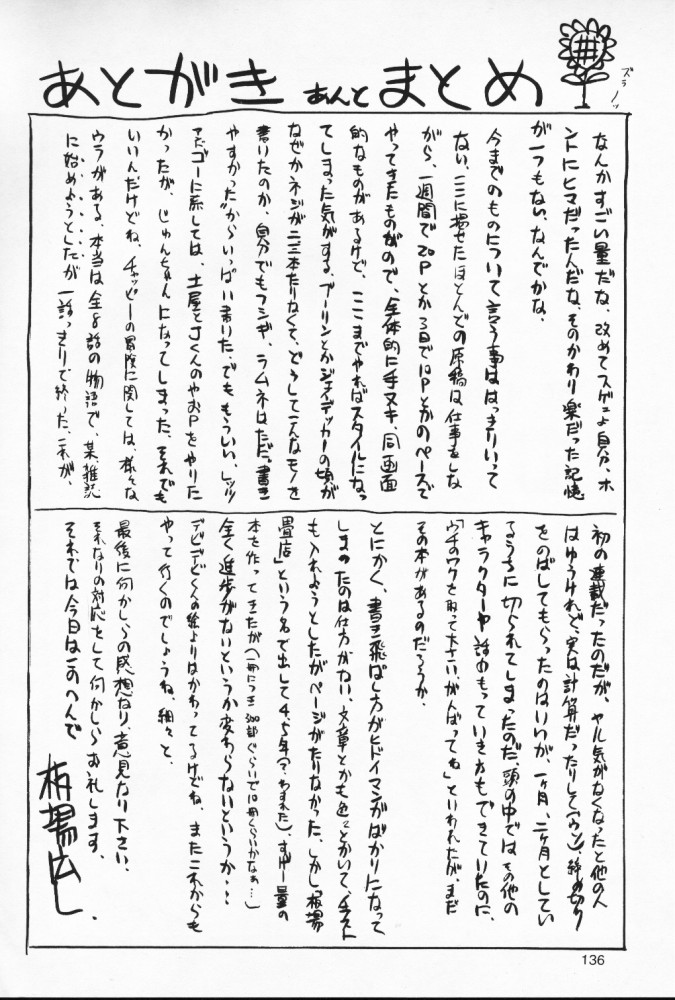 あとがき あんと まとめ
ズラノッ
なんかすごい量だな、改めてスゲェよ自分、ホ
ントにヒマだった人だな、そのかわり楽だった記憶
が一つもない、なんでかな、
今までのものについて言う事ははっきりいって
ない、ここに掲せたほとんどの原稿は仕事をしな
がら、一週間で20Pとか3日で12Pとかのペースで
やってきたものなので、全体的に手ヌキ、同画面
的なものがあるけど、ここまでやればスタイルになっ
てしまった気がする、プーリンとかジェイデッカーの頃が
なぜかネジが二三本たりなくて、どうしてこんなモノを
書けたのか、自分でもフシギ、ラムネはただ"書き
やすかった"からいっぱい書いた、でももういい、レッツ
アゴーに系しては、土屋とJくんのやおPをやりた
かったが、じゅんちゃんになってしまった、それでも
いいんだけどね、チャッピーの冒険に関しては、様々な
ウラがある、本当は全8話の物語で、某、雑誌
に始めようとしたが一話っきりで終った、これが、
初の連載だったのだが、ヤル気がなくなったと他の人
はゆうけれど、実は計算だったりして(ウソ)、締め切り
をのばしてもらったのはいいが、一ヶ月、二ヶ月としてい
るうちに切られてしまったのだ、頭の中ではその他の
キャラクターや話のもっていき方もできていたのに、
「ウチのワクを取って下さい、がんばっても」といわれたが、まだ
その本があるのだろうか、
とにかく、書き飛ばし方がヒドイマンガばかりになって
しまったのは仕方がない、文章とかも色々とかいて、イラスト
も入れようとしたがページがたりなかった、しかし「板場
畳店」という名で出して4、5年(?わすれた)、すげー量の
本を作ってきたが(一冊につき300部ぐらいで10冊くらいかなぁ…)
全く進歩がないというか変わらないというか・・
デビデビくんの絵よりはかわってるけどね、またこれからも
やって行くのでしょうね、細々と、
最後に何かしらの感想なり、意見なり下さい、
それなりの対応をして何かしらお礼します、
それでは今日はこのへんで
板場広し、
136